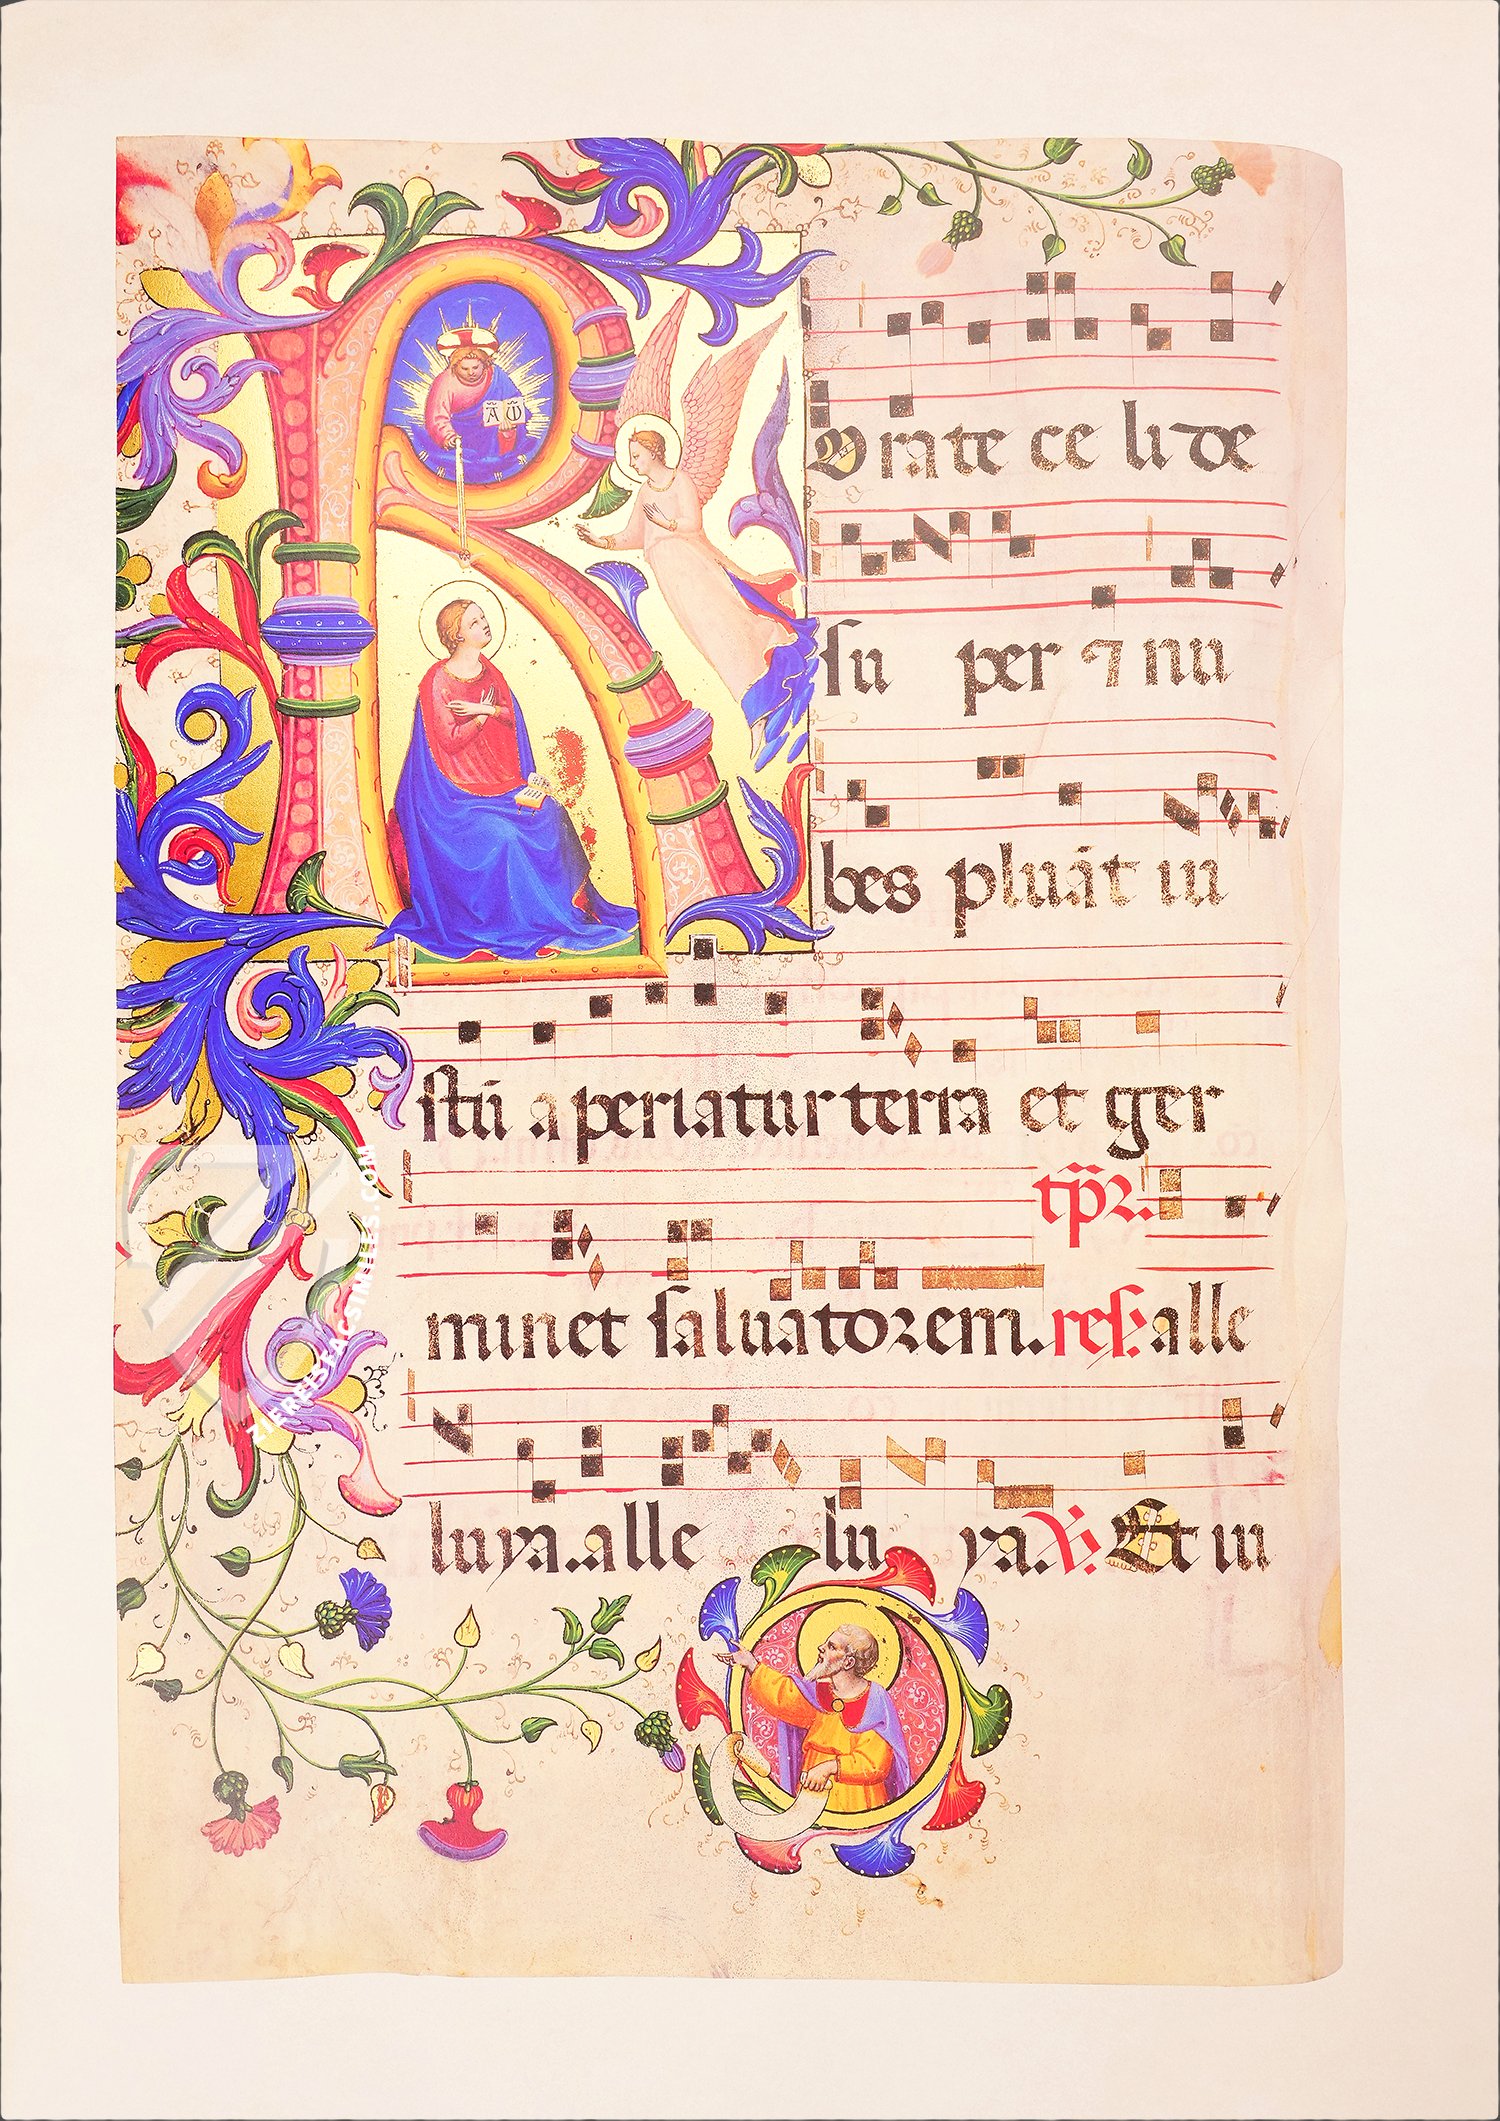 R Orate ce li de
su per ⁊ nu
bes pluāt iu
stū a periatur terra et ger
minet saluatorem. res: tp̄r. alle
luya. alle lu ya. V. Et in
A Ω
ZIEREISFACSIMILES.COM